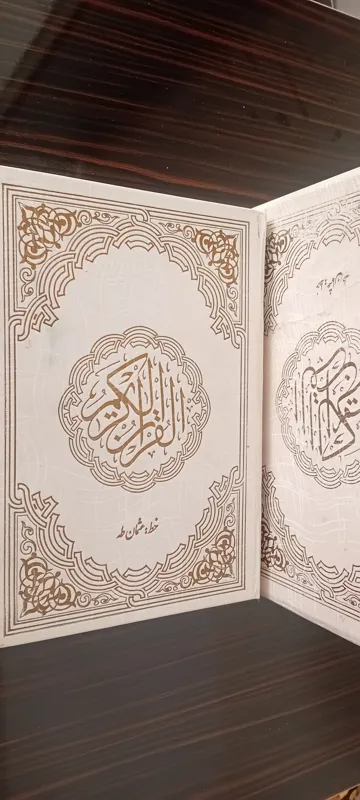 القرآن الكريم
خط: عثمان طه